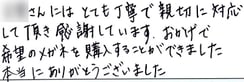 さんには とても丁寧で 親切に 対応
して 頂き 感謝しています。おかげで
希望のメガネを購入することができました
本当に ありがとうございました